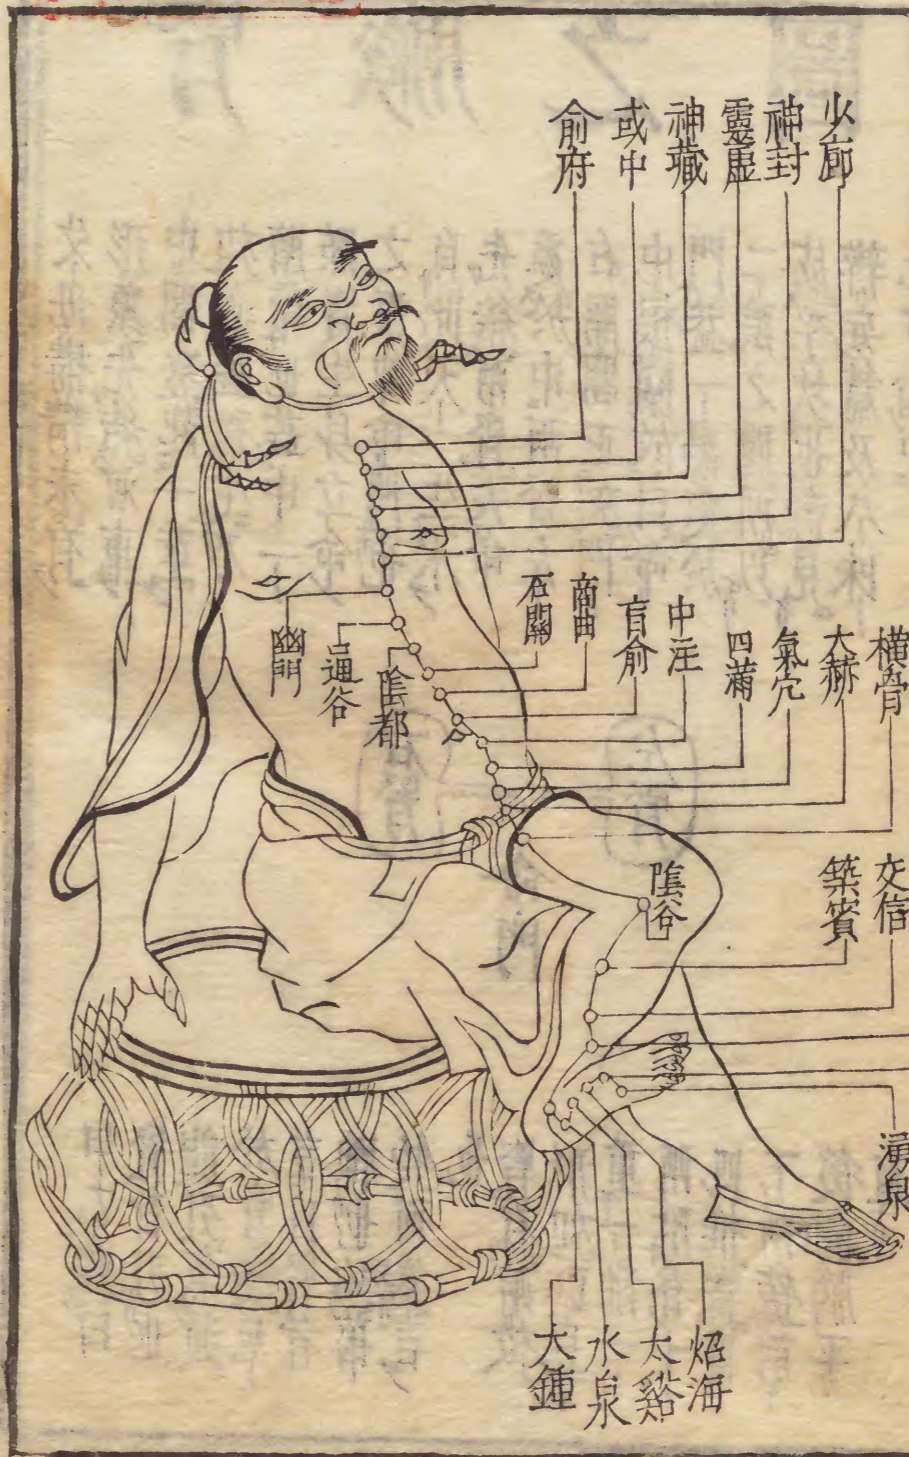 少廊
神封
靈虛
神藏
或中
俞府
橫骨
大赫
氣穴
四滿
中注
肓俞
商曲
石關
陰都
通谷
幽門
交信
築賓
陰谷
湧泉
炤海
太谿
水泉
大鍾